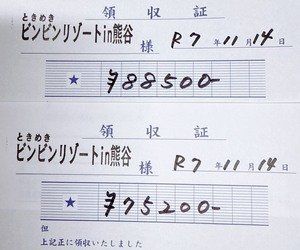 領収証
ときめき
ピンピンリゾートin熊谷 様 R7年11月14日
★ ¥88500-
領収証
ときめき
ピンピンリゾートin熊谷 様 R7年11月14日
★ ¥75200-
但
上記正に領収いたしました